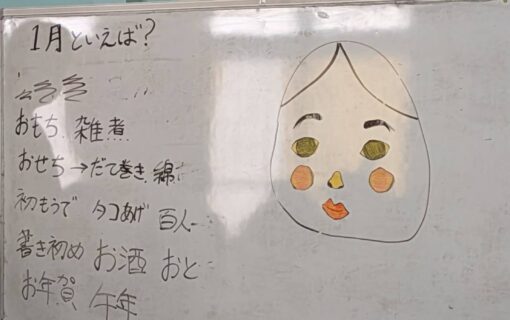 1月といえば?
おもち、雑煮
おせち→だて巻き、
初もうで タコあげ 百人
書き初め お酒 おと
お年賀 午年